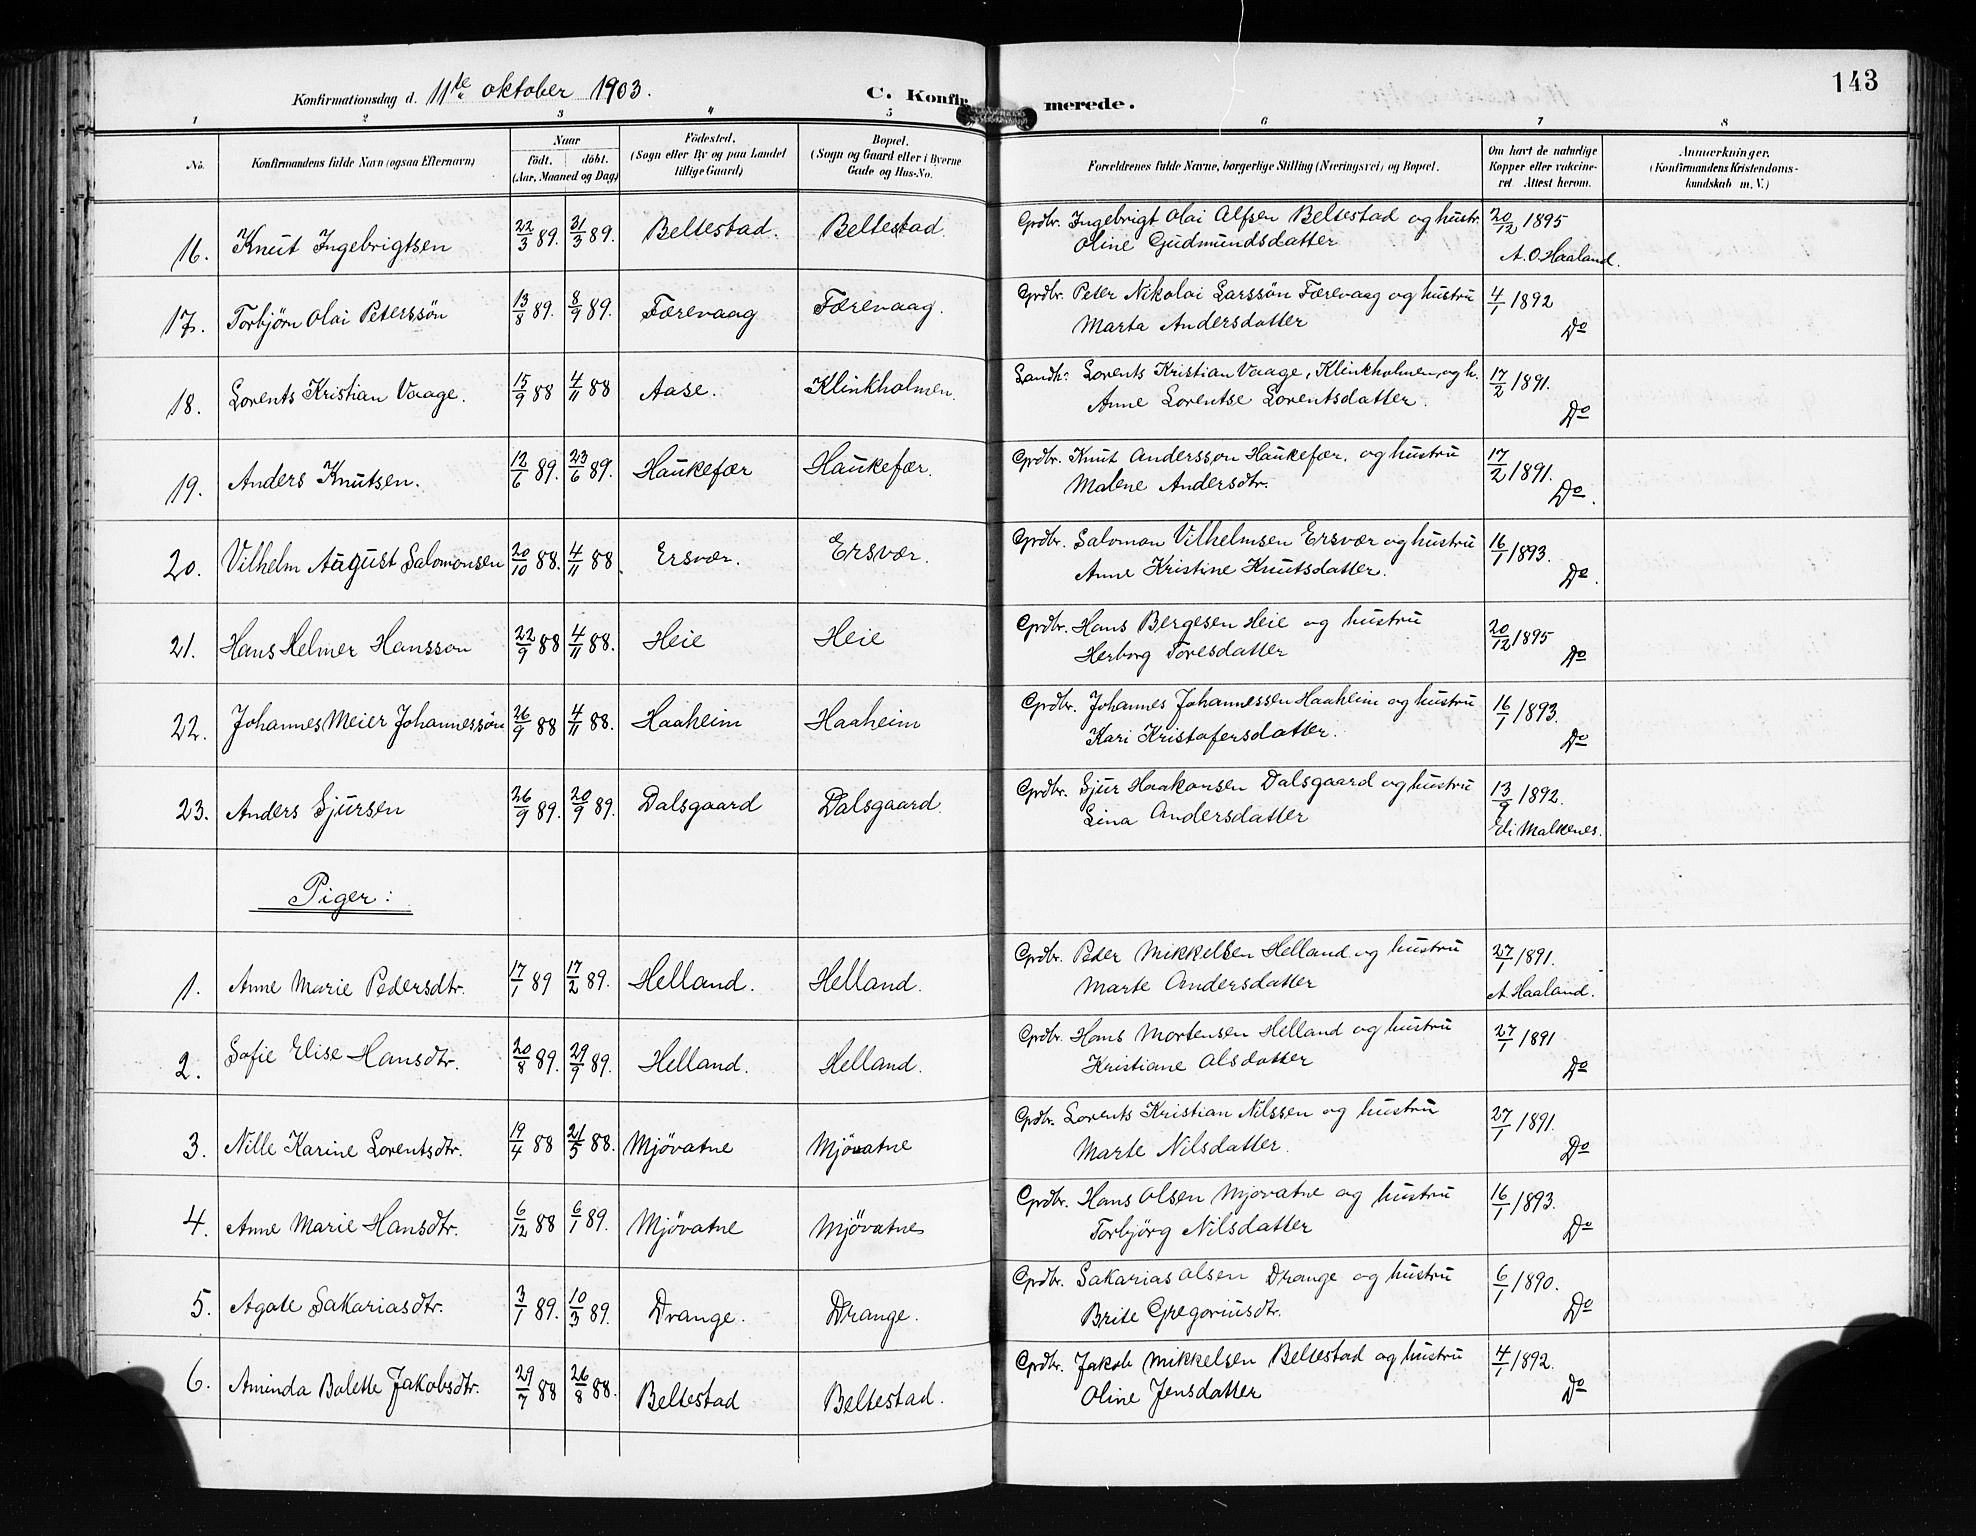 143
Konfirmationsdag d. 11te oktober 1903. C. Konfirmerede.
1 2 3 4 5 6 7 8
No. Konfirmandens fulde Navn (ogsaa Efternavn) Naar født. døbt. (Aar, Maaned og Dag) Fødested. (Sogn eller By og paa Landet tillige Gaard) Bopæl. (Sogn og Gaard eller i Byerne Gade og Hus-No. Forældrenes fulde Navne, borgerlige Stilling (Næringsvei) og Bopæl. Om havt de naturlige Kopper eller vakcineret. Attest herom. Anmærkninger. (Konfirmandens Kristendomskundskab m. V.)
16. Knut Ingebrigtsen 22/3 89. 31/3 89. Beltestad. Beltestad. Grdbr. Ingebrigt Olai Alfsen Beltestad og hustr. 20/12 1895
Oline Gudmundsdatter A. O. Haaland.
17. Torbjørn Olai Peterssøn 13/8 89. 8/9 89. Færevaag Færevaag. Grdbr. Peter Nikolai Larssøn Færevaag og hustru 4/1 1892
Marta Andersdatter Do
18. Lorents Kristian Vaage. 15/9 88 4/11 88 Aase. Klinkholmen. Landh: Lorents Kristian Vaage, Klinkholmen, og h. 17/2 1891.
Anne Lorentse Lorentsdatter. Do
19. Anders Knutsen. 12/6 89. 23/6 89. Haukefær Haukefær. Grdbr. Knut Anderssøn Haukefær. og hustru 17/2 1891.
Malene Andersdtr. Do.
20. Vilhelm August Salomonsen 20/10 88. 4/11 88. Ersvær. Ersvær. Grdbr. Salomon Vilhelmsen Ersvær og hustru 16/1 1893.
Anne Kristine Knutsdatter. Do.
21. Hans Helmer Hansson 22/9 88 4/11 88. Heie Heie Grdbr. Hans Bergesen Heie og hustru 20/12 1895
Herborg Toresdatter Do
22. Johannes Meier Johannessøn 26/9 88 4/11 88. Haaheim Haaheim Grdbr. Johannes Johannessen Haaheim og hustru 16/1 1893.
Kari Kristofersdatter. Do
23. Anders Sjursen 26/9 89. 20/9 89. Dalsgaard Dalsgaard. Grdbr. Sjur Haakonsen Dalsgaard og hustru 13/9 1892.
Lina Andersdatter Eli Malkenes.
Piger:
1. Anne Marie Pedersdtr. 17/1 89 17/2 89. Helland. Helland. Grdbr. Peder Mikkelsen Helland og hustru 27/1 1891.
Marte Andersdatter A. Haaland.
2. Sofie Elise Hansdtr. 20/8 89. 29/9 89. Helland. Helland. Grdbr. Hans Mortensen Helland og hustru 27/1 1891
Kristiane Alsdatter Do
3. Nille Karine Lorentsdtr. 19/4 88 21/5 88. Mjøvatne Mjøvatne Grdbr. Lorents Kristian Nilssen og hustru 27/1 1891.
Marte Nilsdatter. Do
4. Anne Marie Hansdtr. 6/12 88 6/1 89. Mjøvatne Mjøvatne Grdbr. Hans Olsen Mjøvatne og hustru 16/1 1893.
Torbjørg Nilsdatter Do
5. Agate Sakariasdtr. 3/1 89. 10/3 89. Drange. Drange. Grdbr. Sakarias Olsen Drange og hustru 6/1 1890.
Brite Gregoriusdtr. Do
6. Aminda Bolette Jakobsdtr. 29/7 88 26/8 88. Beltestad Beltestad. Grdbr. Jakob Mikkelsen Beltestad og hustru 4/1 1892.
Oline Jensdatter Do